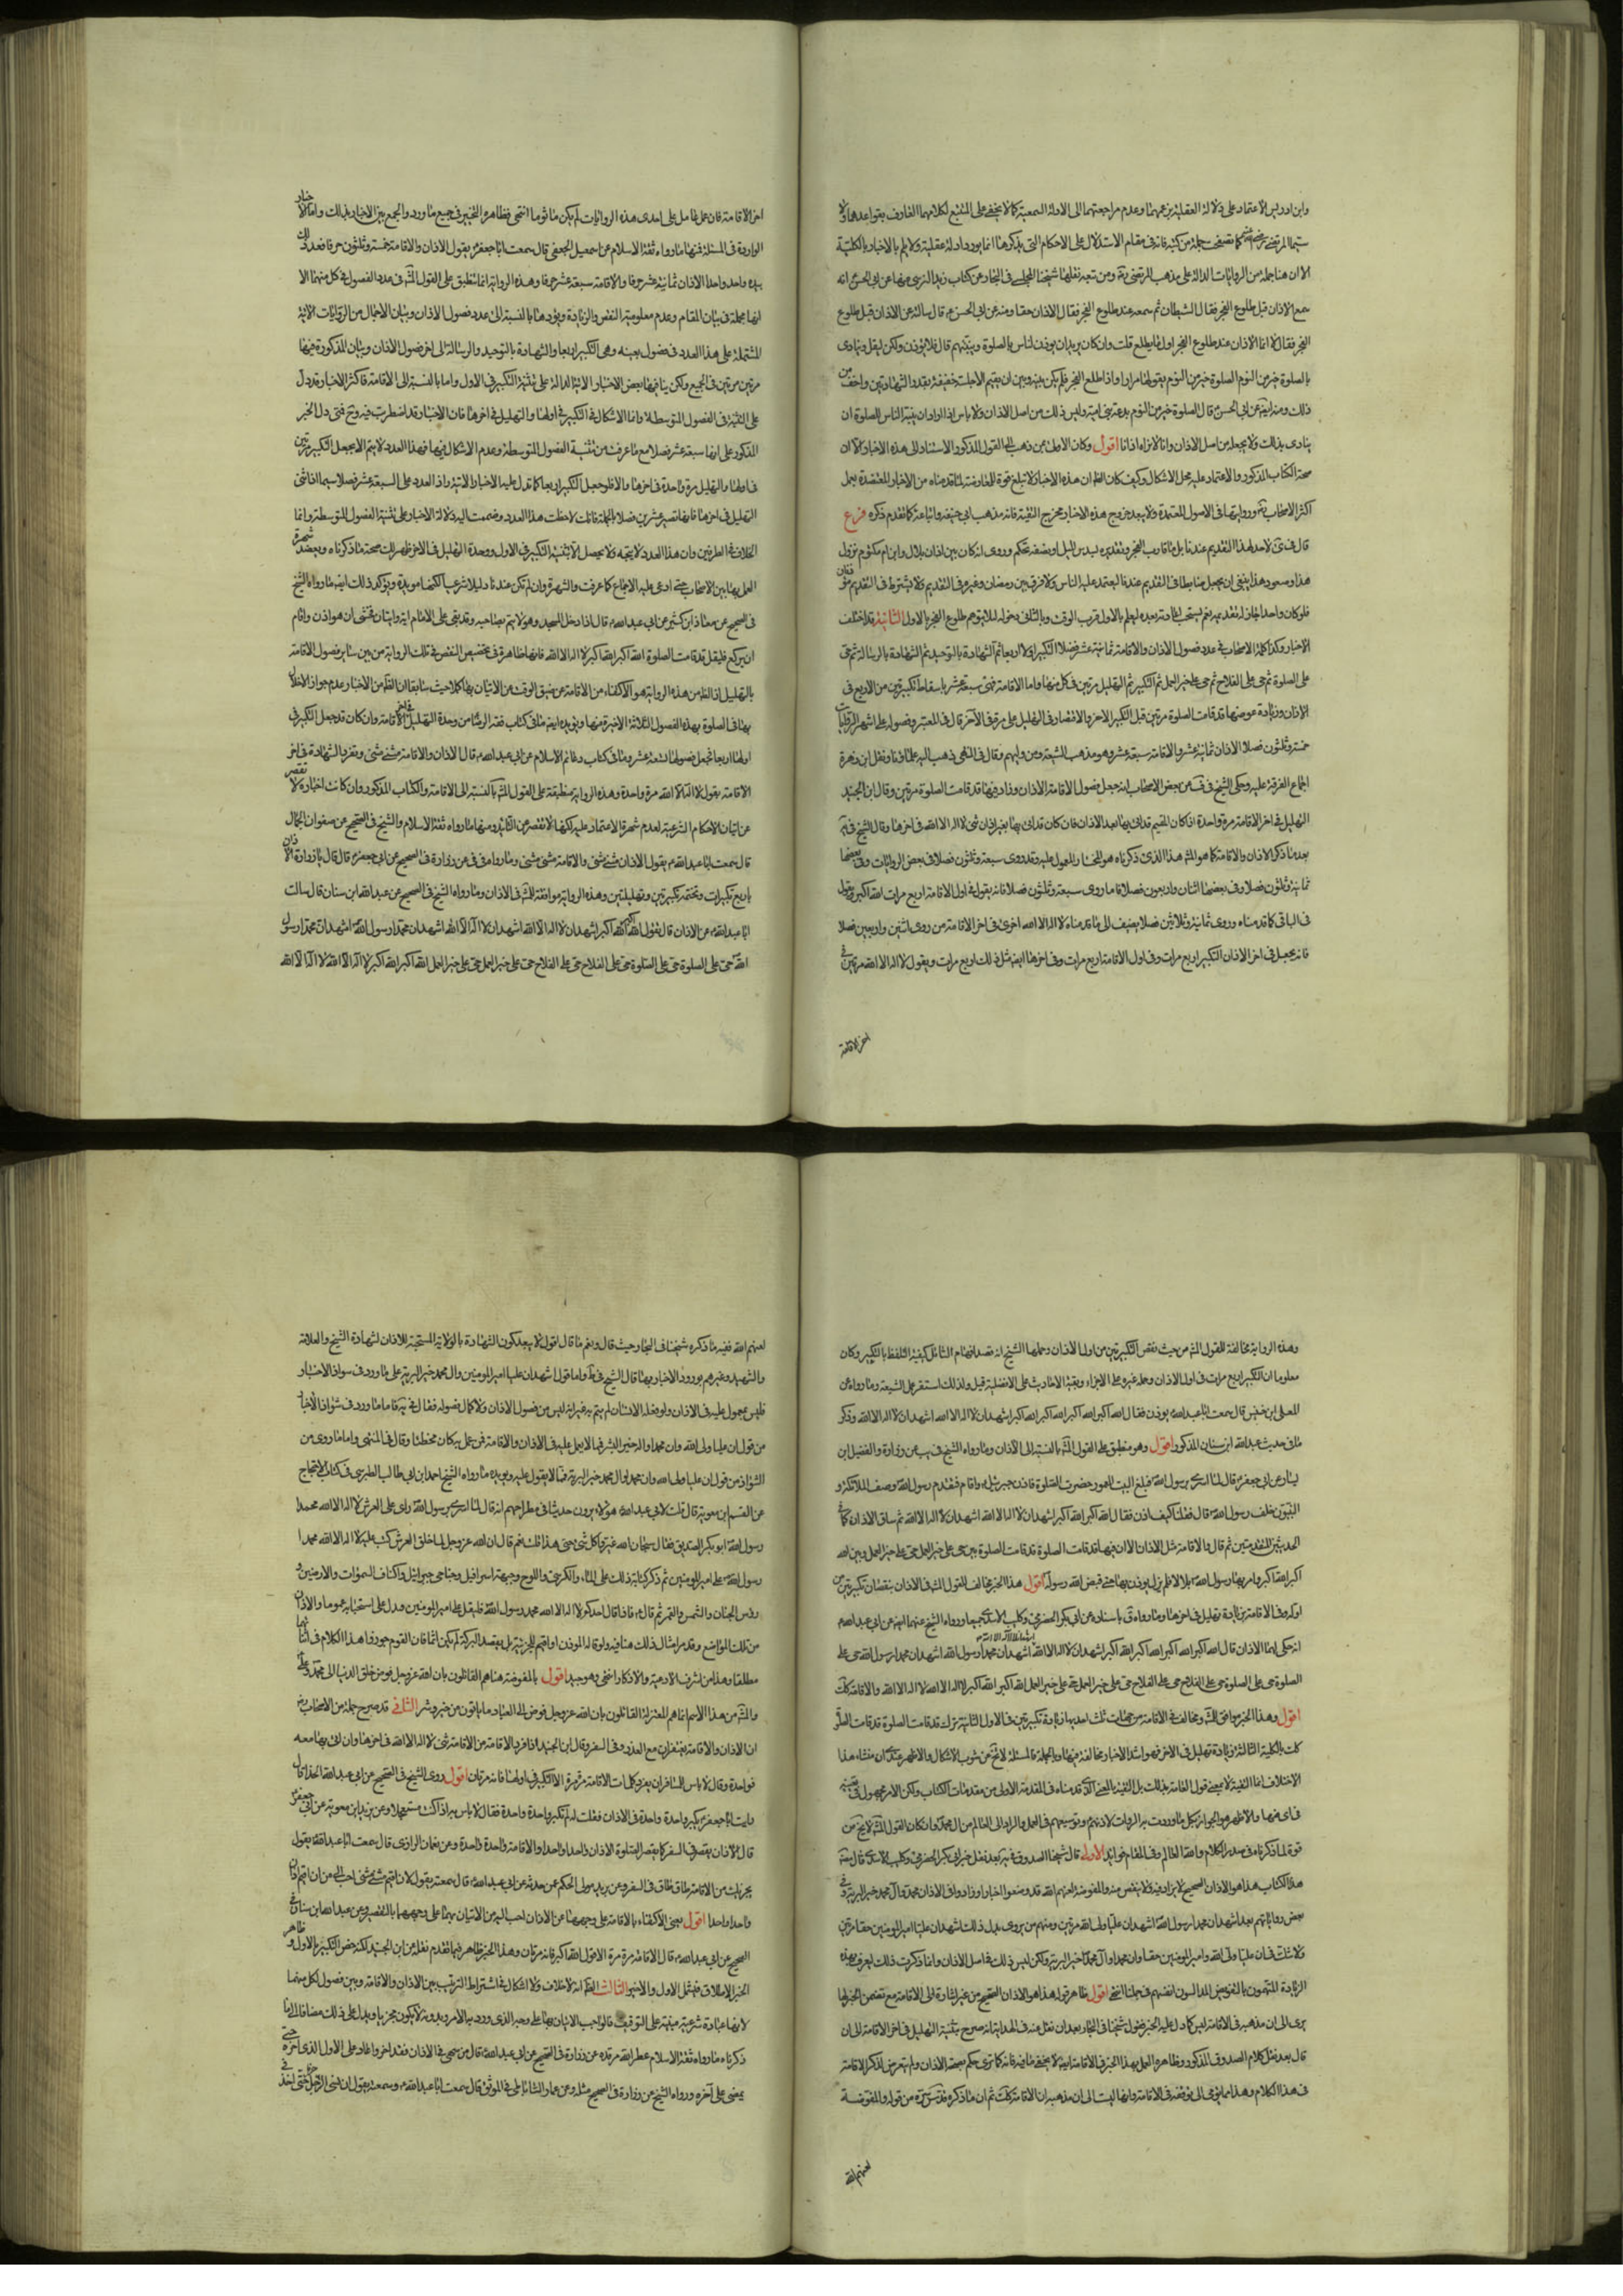 وابن ادريس الاعتماد على دلالة العقلية وعدم مراجعتهما الى الادلة السمعية كما لا يخفى على المتتبع لكلامهما العارف بقواعدهما ولا
سيما المرتضى كما تصفحت جملة من كتبه فانه في مقام الاستدلال على الاحكام التي يذكرها انما يورد ادلة عقلية ولا يلم بالاخبار بالكلية
الا ان هنا جملة من الروايات الدالة على مذهب المرتضى ومن تبعه نقلها شيخنا المجلسي في البحار عن كتاب زيد النرسي منها عن ابي الحسن انه
سمع الاذان قبل طلوع الفجر فقال الشيطان ثم سمعه عند طلوع الفجر فقال الاذان حقا ومنه عن ابي الحسن ع قال سالته عن الاذان قبل طلوع
الفجر فقال لا انما الاذان عند طلوع الفجر اول ما يطلع قلت وان كان يريد ان يوذن الناس بالصلوة وينبههم قال فلا يوذن ولكن ليقل وينادى
بالصلوة خير من النوم الصلوة خير من النوم يقولها مرارا واذا طلع الفجر فلم يكن بينه وبين ان يقيم الا جلسة خفيفة بقدر الشهادتين واخف من
ذلك ومنه ايضا عن ابي الحسن قال الصلوة خير من النوم بدعة بني امية وليس ذلك من اصل الاذان ولا باس اذا اراد ان ينبه الناس للصلوة ان
ينادى بذلك ولا يجعله من اصل الاذان وانا لا نراه اذانا اقول وكان الاولى لمن ذهب الى القول المذكور الاستناد الى هذه الاخبار الا ان
صحة الكتاب المذكور والاعتماد عليه محل الاشكال وكيف كان الظ ان هذه الاخبار لا تبلغ قوة المعارضة لما قدمناه من الاخبار المعتضدة بعمل
اكثر الاصحاب وروايتها في الاصول المعتمدة ولا يبعد خروج هذه الاخبار مخرج التقية فانه مذهب ابي حنيفة واتباعه كما تقدم ذكره فرع
قال في لا حد لهذا التقديم عندنا بل ما قارب الفجر وتقديره بسدس الليل او نصفه تحكم وروى انه كان بين اذان بلال وابن ام مكتوم نزول
هذا وصعود هذا ينبغي ان يجعل ضابطا في التقديم عندنا ليعتمد عليه الناس ولا فرق بين رمضان وغيره في التقديم ولا يشترط في التقديم موذنان
فلو كان واحدا جاز له تقديمه نعم يستحب اعادته بعده ليعلم بالاول قرب الوقت وبالثاني دخوله لئلا يتوهم طلوع الفجر بالاول الثانية قد اختلف
الاخبار وكذا كلمة الاصحاب في عدد فصول الاذان والاقامة ثمانية عشر فصلا التكبير اولا اربعا ثم الشهادة بالتوحيد ثم الشهادة بالرسالة ثم حي
على الصلوة ثم حي على الفلاح ثم حي على خير العمل ثم التكبير ثم التهليل مرتين في كل منها واما الاقامة فهي سبعة عشر باسقاط تكبيرتين من الاربع في
الاذان وزيادة عوضها قد قامت الصلوة مرتين قبل التكبير الاخير والاقتصار في التهليل على مرة في الاخر قال في المعتبر وفصوله على اشهر الروايات
خمسة وثلثون فصلا الاذان ثمانية عشر والاقامة سبعة عشر وهو مذهب الشيعة ومن والهم وقال في المنتهى ذهب اليه علماؤنا ونقل ابن زهرة
اجماع الفرقة عليه وحكى الشيخ في عن بعض الاصحاب انه جعل فصول الاقامة الاذان وزاد فيها قد قامت الصلوة مرتين وقال ابن الجنيد
التهليل في اخر الاقامة مرة واحدة اذا كان المقيم قد اتى بها بعد الاذان فان كان قد اتى بها بغير اذان ثنى لا اله الا الله في اخرها وقال الشيخ في
بعد ما ذكر الاذان والاقامة كما هو المش هذا الذي ذكرناه هو المختار المعول عليه وقد روى سبعة وثلثون فصلا في بعض الروايات وفي بعضها
ثمانية وثلثون فصلا وفي بعضها اثنان واربعون فصلا فاما ما روى سبعة وثلثون فصلا فانه يقول في اول الاقامة اربع مرات الله اكبر ويقول
في الباقي كما قدمناه وروى ثمانية وثلاثين فصلا يضيف الى ما قدمناه لا اله الا الله اخرى في اخر الاقامة من روى اثنين واربعين فصلا
فانه يجعل في اخر الاذان التكبير اربع مرات وفي اول الاقامة اربع مرات وفي اخرها ايضا مثل ذلك اربع مرات ويقول لا اله الا الله مرتين في
اخر الاقامة
اخر الاقامة فان عمل عامل على احدى هذه الروايات لم يكن ماثوما انتهى فظاهره التخيير في جميع ما ورد والجمع بين الاخبار بذلك واما الاخبار
الواردة في المسئلة فمنها ما رواه ثقة الاسلام عن اسمعيل الجعفي قال سمعت ابا جعفر ع يقول الاذان والاقامة خمسة وثلثون حرفا فعد ذلك
بيده واحدا واحدا الاذان ثمانية عشر حرفا والاقامة سبعة عشر حرفا وهذه الرواية انما تنطبق على القول المش في عدد الفصول في كل منهما الا
انها مجملة في بيان المقام وعدم معلومية النقص والزيادة ويؤيدها بالنسبة الى عدد فصول الاذان وبيان الاجمال من الروايات الاتية
المشتملة على هذا العدد في فصول بعينه وهي التكبير اربعا والشهادة بالتوحيد والرسالة الى اخر فصول الاذان وبيان المذكورة فيها
مرتين مرتين في الجميع ولكن ينافيها بعض الاخبار الاتية الدالة على تثنية التكبير في الاول واما بالنسبة الى الاقامة فاكثر الاخبار قد دل
على التثنية في الفصول المتوسطة وانما الاشكال في التكبير في اولها والتهليل في اخرها فان الاخبار قد اضطربت فيه وح فمتى دل الخبر
المذكور على انها سبعة عشر فصلا مع ما عرفت من تثنية الفصول المتوسطة وعدم الاشكال فيها فهذا العدد لا يتم الا بجعل التكبير مرتين
في اولها والتهليل مرة واحدة في اخرها والا فلو جعل التكبير اربعا كما تدل عليه الاخبار الاتية زاد العدد على السبعة عشر فصلا سيما اذا ثنى
التهليل في اخرها فانها تصير عشرين فصلا وبالجملة فانك لاحظت هذا العدد وضممت اليه دلالة الاخبار على تثنية الفصول المتوسطة وانما
الخلاف في الطرفين وان هذا العدد لا يتجه ولا يحصل الا بتثنية التكبير في الاول ووحدة التهليل في الاخر ظهر لك صحة ما ذكرناه ويعضد شهرة
العمل بها بين الاصحاب حتى ادعى عليه الاجماع كما عرفت والشهرة وان لم تكن عندنا دليلا شرعيا لكنها مويدة ويوكد ذلك ايضا ما رواه الشيخ
في الصحيح عن معاذ ابن كثير عن ابي عبد الله ع قال اذا دخل المسجد وهو لا يتم بصاحبه وقد بقى على الامام اية وايتان فخشى ان هو اذن واقام
ان يركع فليقل قد قامت الصلوة الله اكبر الله اكبر لا اله الا الله فانها ظاهرة في تخصيص النقص في تلك الرواية من بين ساير فصول الاقامة
بالتهليل اذ الظ من هذه الرواية هو الاكتفاء من الاقامة عن ضيق الوقت عن الاتيان بها كملا حيث سابقا ان الظ من الاخبار عدم جواز الاخلال
بها في الصلوة بهذه الفصول الثلاثة الاخيرة منها ويؤيده ايضا ما في كتاب فقه الرضا من وحدة التهليل في اخر الاقامة وان كان قد جعل التكبير في
اولها اربعا فجعل فصولها تسعة عشر وما في كتاب دعائم الاسلام عن ابي عبد الله ع قال الاذان والاقامة مثنى مثنى وتفرد الشهادة في اخر
الاقامة بقول لا اله الا الله مرة واحدة وهذه الرواية منطبقة على القول المش بالنسبة الى الاقامة والكتاب المذكور وان كانت اخباره لا تقصر
عن اتيان الاحكام الشرعية لعدم شهرة الاعتماد عليه لكنها لا تقصر عن التائيد ومنها ما رواه ثقة الاسلام والشيخ في الصحيح عن صفوان الجمال
قال سمعت ابا عبد الله ع يقول الاذان مثنى مثنى والاقامة مثنى مثنى وما رواه في في عن زرارة في الصحيح عن ابي جعفر ع قال قال يا زرارة الاذان
باربع تكبيرات وتختمه بتكبيرتين وتهليلتين وهذه الرواية موافقة للمش في الاذان وما رواه الشيخ في الصحيح عن عبد الله ابن سنان قال سالت
ابا عبد الله ع عن الاذان قال تقول الله اكبر الله اكبر اشهد ان لا اله الا الله اشهد ان لا اله الا الله اشهد ان محمدا رسول الله اشهد ان محمدا رسول
الله حي على الصلوة حي على الصلوة حي على الفلاح حي على الفلاح حي على خير العمل حي على خير العمل الله اكبر الله اكبر لا اله الا الله لا اله الا الله
وهذه الرواية مخالفة للقول المش من حيث نقص التكبيرتين من اول الاذان وحملها الشيخ انه قصد افهام السائل كيفية التلفظ بالتكبير وكان
معلوما ان التكبير اربع مرات في اول الاذان وحمله غيره على الاجزاء وبقية الاحاديث على الافضلية قيل ولذلك استقر عمل الشيعة وما رواه عن
المعلى ابن خنيس قال سمعت ابا عبد الله يوذن فقال الله اكبر الله اكبر الله اكبر الله اكبر اشهد ان لا اله الا الله اشهد ان لا اله الا الله وذكر
مثل حديث عبد الله ابن سنان المذكور اقول وهو منطبق على القول المش بالنسبة الى الاذان وما رواه الشيخ في يب عن زرارة والفضيل ابن
يسار عن ابي جعفر ع قال لما اسرى برسول الله فبلغ البيت المعمور حضرت الصلوة فاذن جبرئيل ع واقام فتقدم رسول الله وصف الملائكة و
النبيون خلف رسول الله قال فقلنا كيف اذن فقال الله اكبر الله اكبر اشهد ان لا اله الا الله اشهد ان لا اله الا الله ثم ساق الاذان كما في
الحديثين المتقدمين ثم قال والاقامة مثل الاذان الا ان فيها قد قامت الصلوة قد قامت الصلوة بين حي على خير العمل حي على خير العمل وبين الله
اكبر الله اكبر وامر بها رسول الله بلالا فلم يزل يوذن بها حتى قبض الله رسوله اقول هذا الخبر مخالف للقول المش في الاذان بنقصان تكبيرتين من
اوله وفي الاقامة بزيادة تهليل في اخرها وما رواه في باسناده عن ابي بكر الحضرمي وكليب الاسدي جميعا ورواه الشيخ عنهما ايضا عن ابي عبد الله ع
انه حكى لهما الاذان فقال الله اكبر الله اكبر الله اكبر الله اكبر اشهد ان لا اله الا الله اشهد ان محمدا رسول الله اشهد ان محمدا رسول الله حي على
الصلوة حي على الصلوة حي على الفلاح حي على الفلاح حي على خير العمل حي على خير العمل الله اكبر الله اكبر لا اله الا الله لا اله الا الله والاقامة كك
اقول وهذا الخبر موافق للمش ومخالف في الاقامة من جهات ثلث احديها زيادة تكبيرتين في الاول الثانية ترك قد قامت الصلوة قد قامت الصلوة
كك بالكلية الثالثة زيادة تهليل في الاخر فهو اشد الاخبار مخالفة فيها وبالجملة فالمسئلة لا تخ عن شوب الاشكال والاظهر عندي ان منشاء هذا
الاختلاف انما التقية لا بمعنى قول العامة بذلك بل التقية بالمعنى الذي قدمناه في المقدمة الاولى من مقدمات الكتاب ولكن الامر مجهول في تعيينه
في اي منها والاظهر هو الجواز بكل ما وردت به الروايات لاذنهم وتوسيعهم في العمل والراد الى العالم من ال محمد وان كان القول المش لا يخ من
قوة لما ذكرناه في صدر الكلام والله العالم وفي المقام فوائد الاولى قال شيخنا الصدوق في يه بعد نقل خبر ابي بكر الحضرمي وكليب الاسدي قال مصنف
هذا الكتاب هذا هو الاذان الصحيح لا يزاد فيه ولا ينقص منه والمفوضة لعنهم الله قد وضعوا اخبارا وزادوا في الاذان محمد وال محمد خير البرية وفي
بعض رواياتهم بعد اشهد ان محمدا رسول الله اشهد ان عليا ولي الله مرتين ومنهم من يروى بدل ذلك اشهد ان عليا امير المومنين حقا مرتين
ولا شك في ان عليا ولي الله وامير المومنين حقا وان محمدا وال محمد خير البرية ولكن ليس ذلك في اصل الاذان وانما ذكرت ذلك ليعرف بهذه
الزيادة المتهمون بالتفويض المدلسون انفسهم في جملتنا انتهى اقول ظاهر قوله هذا هو الاذان الصحيح من غير اشارة الى الاقامة مع تضمن الخبر لها
يرى الى ان مذهبه في الاقامة ليس كما دل عليه الخبر فقول شيخنا في البحار بعد ان نقل عنه في الهداية انه صرح بتثنية التهليل في اخر الاقامة الى ان
قال بعد نقل كلام الصدوق المذكور وظاهره العمل بهذا الخبر في الاقامة ايضا لا يخفى ما فيه فانه كما ترى حكم بصحة الاذان ولم يتعرض لذكر الاقامة
في هذا الكلام وهذا مما يومى الى توقفه في الاقامة وانها ليست الى ان مذهبه ان الاقامة كك ثم ان ما ذكره قدس سره من قوله والمفوضة
لعنهم الله
لعنهم الله ففيه ما ذكره شيخنا في البحار حيث قال ونعم ما قال اقول لا يبعد كون الشهادة بالولاية المستحبة للاذان لشهادة الشيخ والعلامة
والشهيد وغيرهم بورود الاخبار بها قال الشيخ في ط واما قول اشهد ان عليا امير المومنين وال محمد خير البرية على ما ورد في شواذ الاخبار
فليس بمعمول عليه في الاذان ولو فعله الانسان لم ياثم به غير انه ليس من فصول الاذان ولا كمال فصوله فقال في يه فاما ما ورد في شواذ الاخبار
من قول ان عليا ولي الله وان محمدا واله خير البشر فمما لا يعمل عليه في الاذان والاقامة فمن عمل به كان مخطئا وقال في المنتهى واما ما روى من
الشواذ من قول ان عليا ولي الله وان محمدا وال محمد خير البرية فمما لا يقول عليه ويويده ما رواه الشيخ احمد ابن ابي طالب الطبرسي في كتاب الاحتجاج
عن القسم ابن معوية قال قلت لابي عبد الله ع هولاء يروون حديثا في معراجهم انه قال لما اسرى برسول الله راى على العرش لا اله الا الله محمد
رسول الله ابو بكر الصديق فقال سبحان الله غيروا كل شئ حتى هذا قلت نعم قال ان الله عز وجل لما خلق العرش كتب عليه لا اله الا الله محمد
رسول الله علي امير المومنين ثم ذكر كتابة ذلك على الماء والكرسي واللوح وجبهة اسرافيل وجناحي جبرائيل واكناف السموات والارضين و
رؤس الجبال والشمس والقمر ثم قال ع فاذا قال احدكم لا اله الا الله محمد رسول الله فليقل علي امير المومنين ويدل على استحبابه عموما والاذان
من تلك المواضع وقد مر امثال ذلك منافيه ولو قاله الموذن او المقيم لا للجزئية بل بقصد البركة لم يكن اثما فان القوم جوزوا هذا الكلام في اثنائهما
مطلقا وهذا من اشرف الادعية والاذكار انتهى وهو جيد اقول بالمفوضة هنا هم القائلون بان الله عز وجل فوض خلق الدنيا الى محمد وعلي
والمش من هذا الاسم انما هم المعتزلة القائلون بان الله عز وجل فوض الى العباد ما ياتون من خير وشر الثاني قد صرح جملة من الاصحاب
ان الاذان والاقامة يقتصران مع العذر وفي السفر وقال ابن الجنيد اذا فرد الاقامة من الاقامة ثنى لا اله الا الله في اخرها وان اتى بها معه
فواحدة وقال لا باس للمسافر ان يفرد كلمات الاقامة مرة مرة الا التكبير في اولها فانه مرتان اقول روى الشيخ في الصحيح عن ابي عبد الله الحذاء قال
رايت ابا جعفر ع يكبر واحدة واحدة في الاذان فقلت له لم تكبر واحدة واحدة فقال لا باس به اذا كنت مستعجلا وعن بريد ابن معوية عن ابي جعفر
قال الاذان يقصر في السفر كما يقصر الصلوة الاذان واحدا واحدا والاقامة واحدة واحدة وعن نعمان الرازي قال سمعت ابا عبد الله يقول
يجزيك من الاقامة طاق طاق في السفر وعن يزيد مولى الحكم عمن حدثه عن ابي عبد الله ع قال سمعته يقول لان اقيم مثنى مثنى احب الى من ان اوذن
واحدا واحدا اقول يعني الاكتفاء بالاقامة على وجهها عن الاذان احب اليه من الاتيان بهما على وجههما بالتقصير وعن عبد الله ابن سنان في
الصحيح عن ابي عبد الله ع قال الاقامة مرة مرة الا قول الله اكبر فانه مرتان وهذا الخبر ظاهر فيما تقدم نقله عن ابن الجنيد لكنه خص التكبير بالاول و ظاهر
الخبر الاطلاق فيشمل الاول والاخير الثالث الظ انه لا خلاف ولا اشكال في اشتراط الترتيب بين الاذان والاقامة وبين فصول لكل منهما
لانها عبادة شرعية مبنية على التوقيف فالواجب الاتيان بها على وجه الذي ورد به الامر وبدونه لا يكون مجزيا ويدل على ذلك مضافا الى ما
ذكرناه ما رواه ثقة الاسلام عطر الله مرقده عن زرارة في الصحيح عن ابي عبد الله ع قال من سهى في الاذان فقدم او اخر اعاد على الاول الذي اخره حتى
يمضى على آخره ورواه الشيخ عن زرارة في الصحيح مثله وعن عمار الساباطي في الموثق قال سمعت ابا عبد الله ع وسمعته يقول ان نسى الرجل حرفا